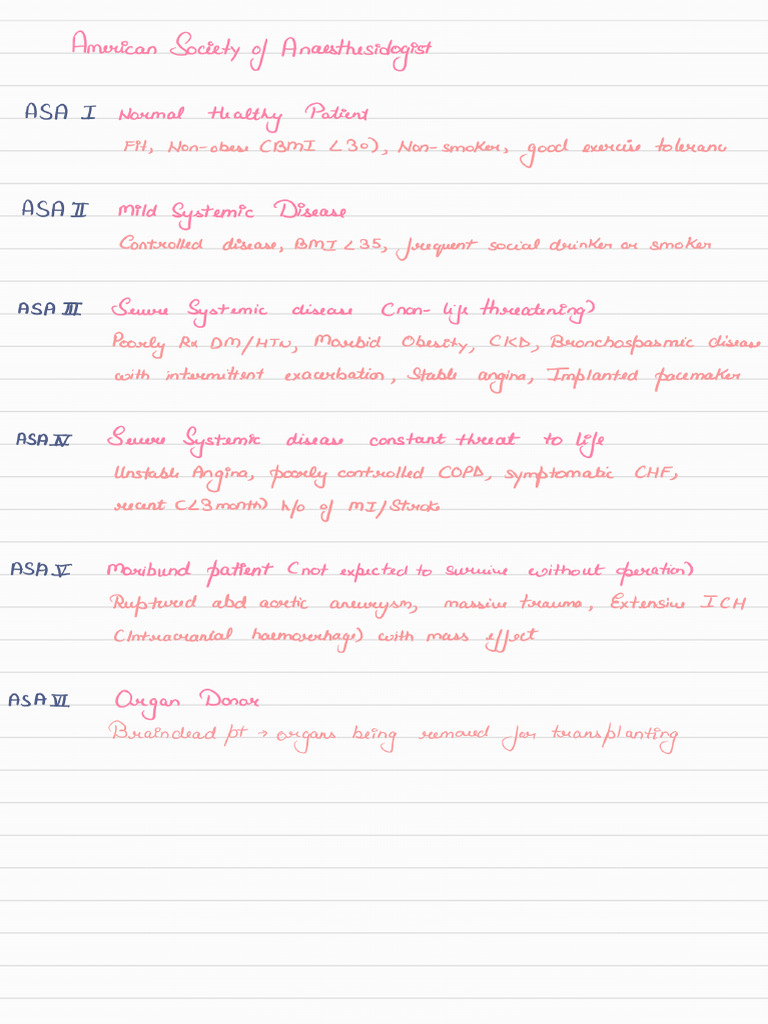 American Society of Anaesthesidogist
ASA I Normal Healthy Patient
Fit, Non-obese (BMI <30), Non-smoker, good exercise toleranc
ASA II Mild Systemic Disease
Controlled disease, BMI <35, frequent social drinker or smoker
ASA III Severe Systemic disease (non-life threatening)
Poorly Rx DM/HTN, Morbid Obesity, CKD, Bronchospasmic disease
with intermittent exacerbation, Stable angina, Implanted pacemaker
ASA IV Severe Systemic disease constant threat to life
Unstable Angina, poorly controlled COPD, symptomatic CHF,
recent (<3 month) h/o of MI/Stroke
ASA V Moribund patient (not expected to survive without operation)
Ruptured abd aortic aneurysm, massive trauma, Extensive ICH
(Intracranial haemorrhage) with mass effect
ASA VI Organ Donor
Braindead pt → organs being removed for transplanting